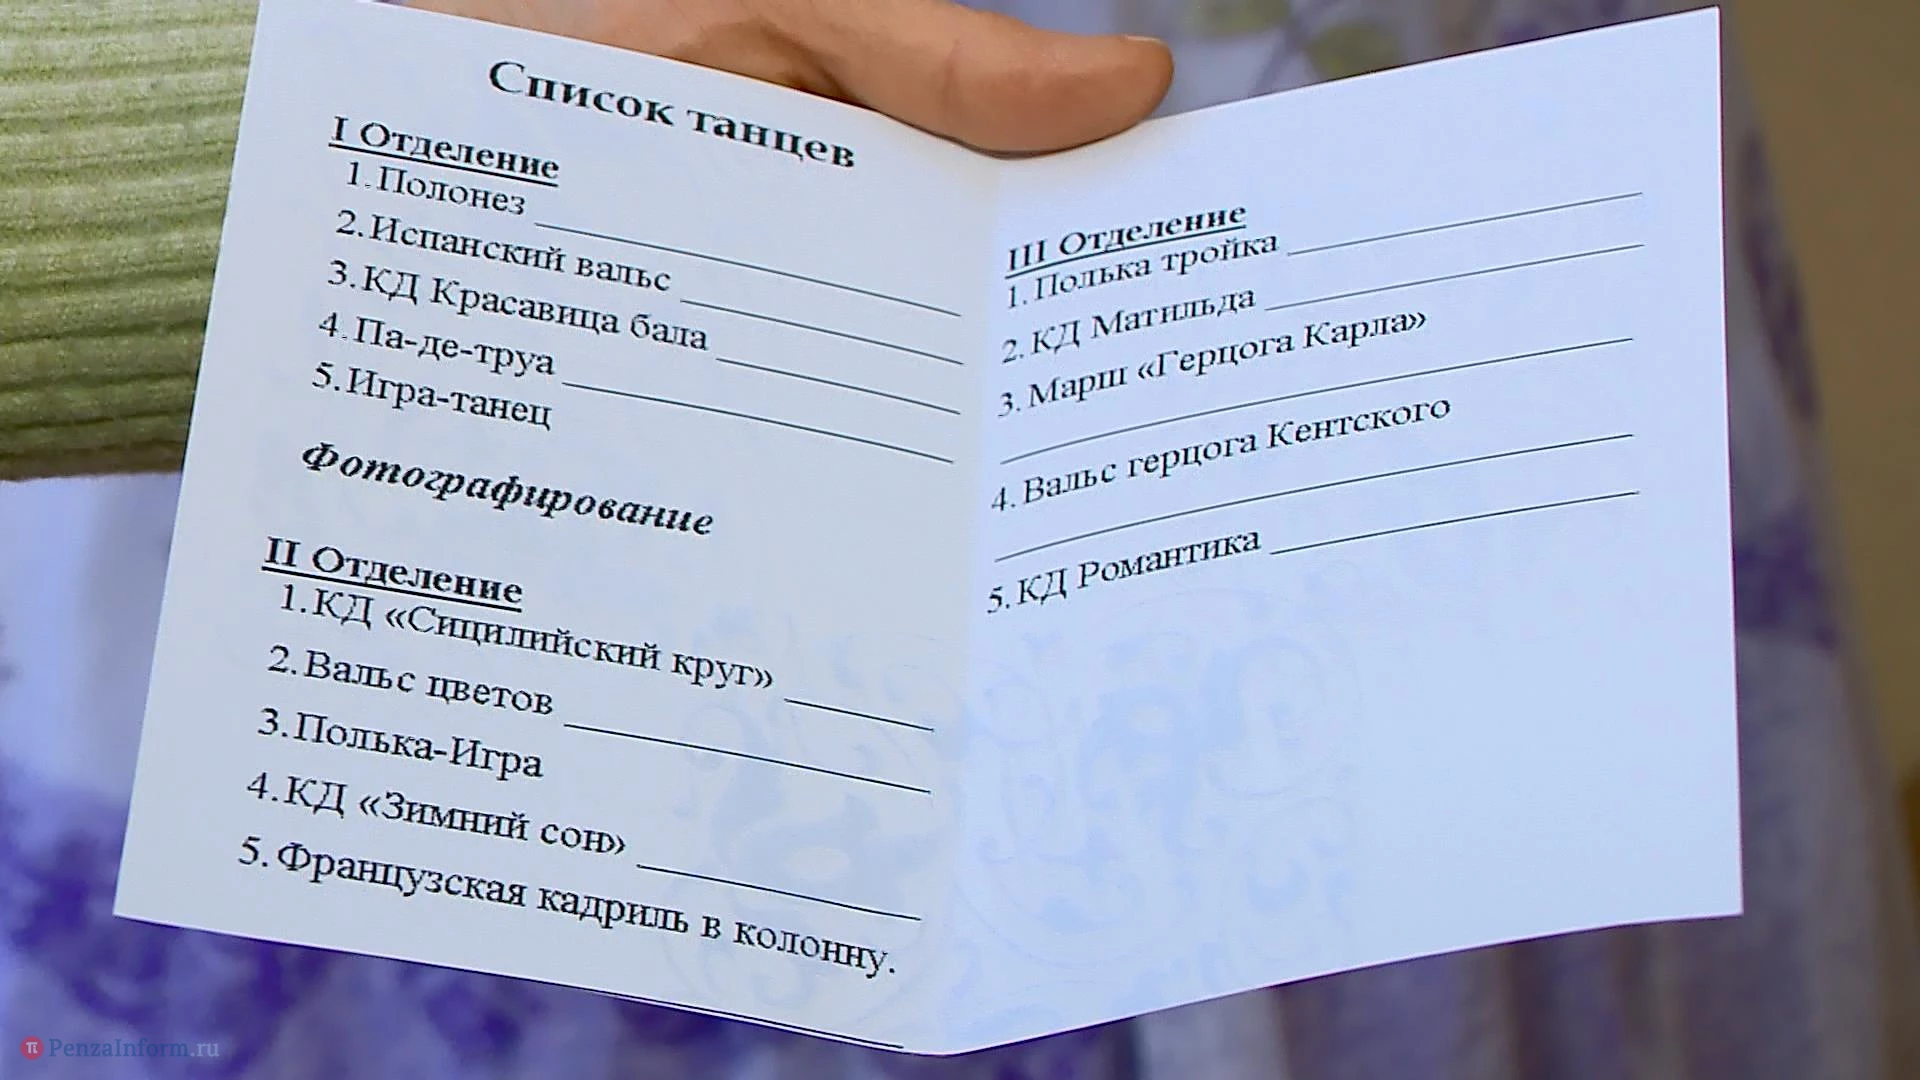 Список танцев
I Отделение
1. Полонез
2. Испанский вальс
3. КД Красавица бала
4. Па-де-труа
5. Игра-танец
Фотографирование
II Отделение
1. КД «Сицилийский круг»
2. Вальс цветов
3. Полька-Игра
4. КД «Зимний сон»
5. Французская кадриль в колонну.
III Отделение
1. Полька тройка
2. КД Матильда
3. Марш «Герцога Карла»
4. Вальс герцога Кентского
5. КД Романтика
π PenzaInform.ru